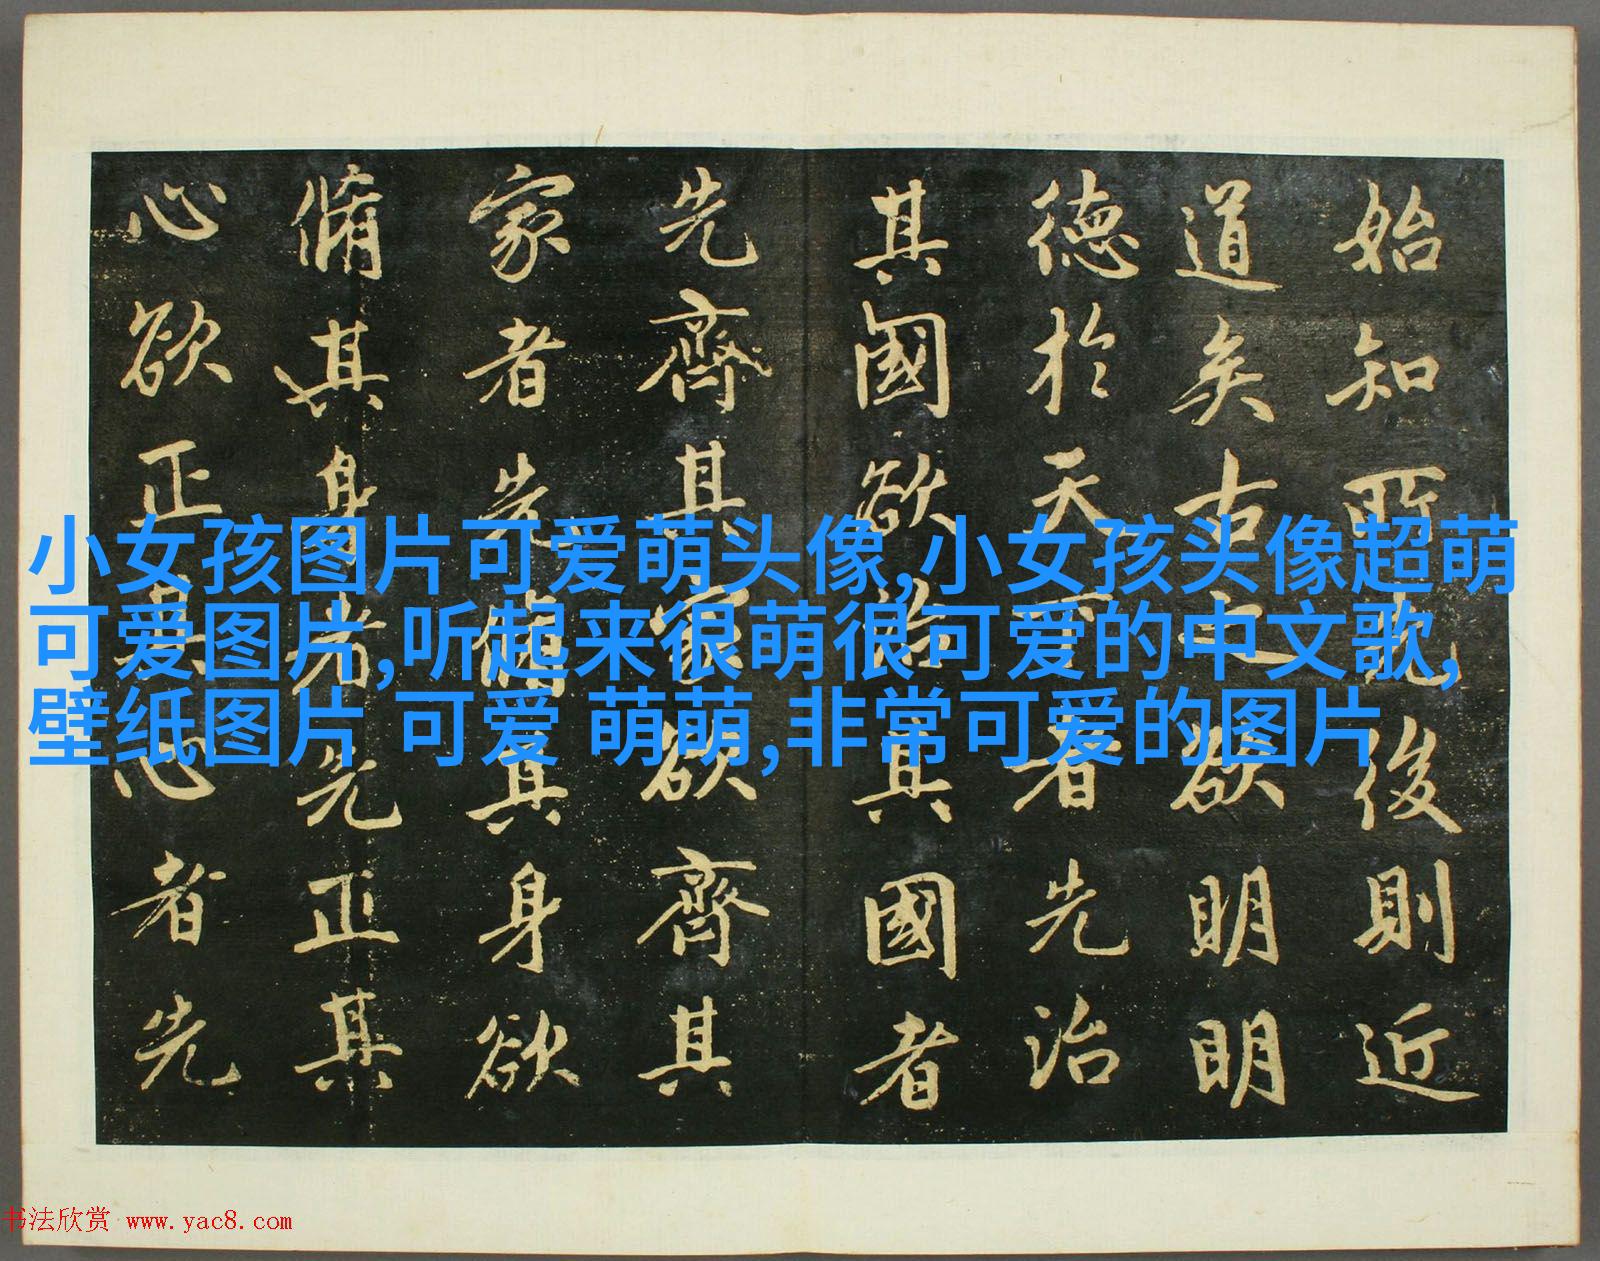 始知所先後則近
道矣古之欲明明
德於天下者先治
其國欲治其國者
先齊其家欲齊其
家者先脩其身欲
脩其身者先正其
心欲正其心者先
小女孩图片可爱萌头像,小女孩头像超萌
可爱图片,听起来很萌很可爱的中文歌,
壁纸图片 可爱 萌萌,非常可爱的图片
书法欣赏 www.yac8.com